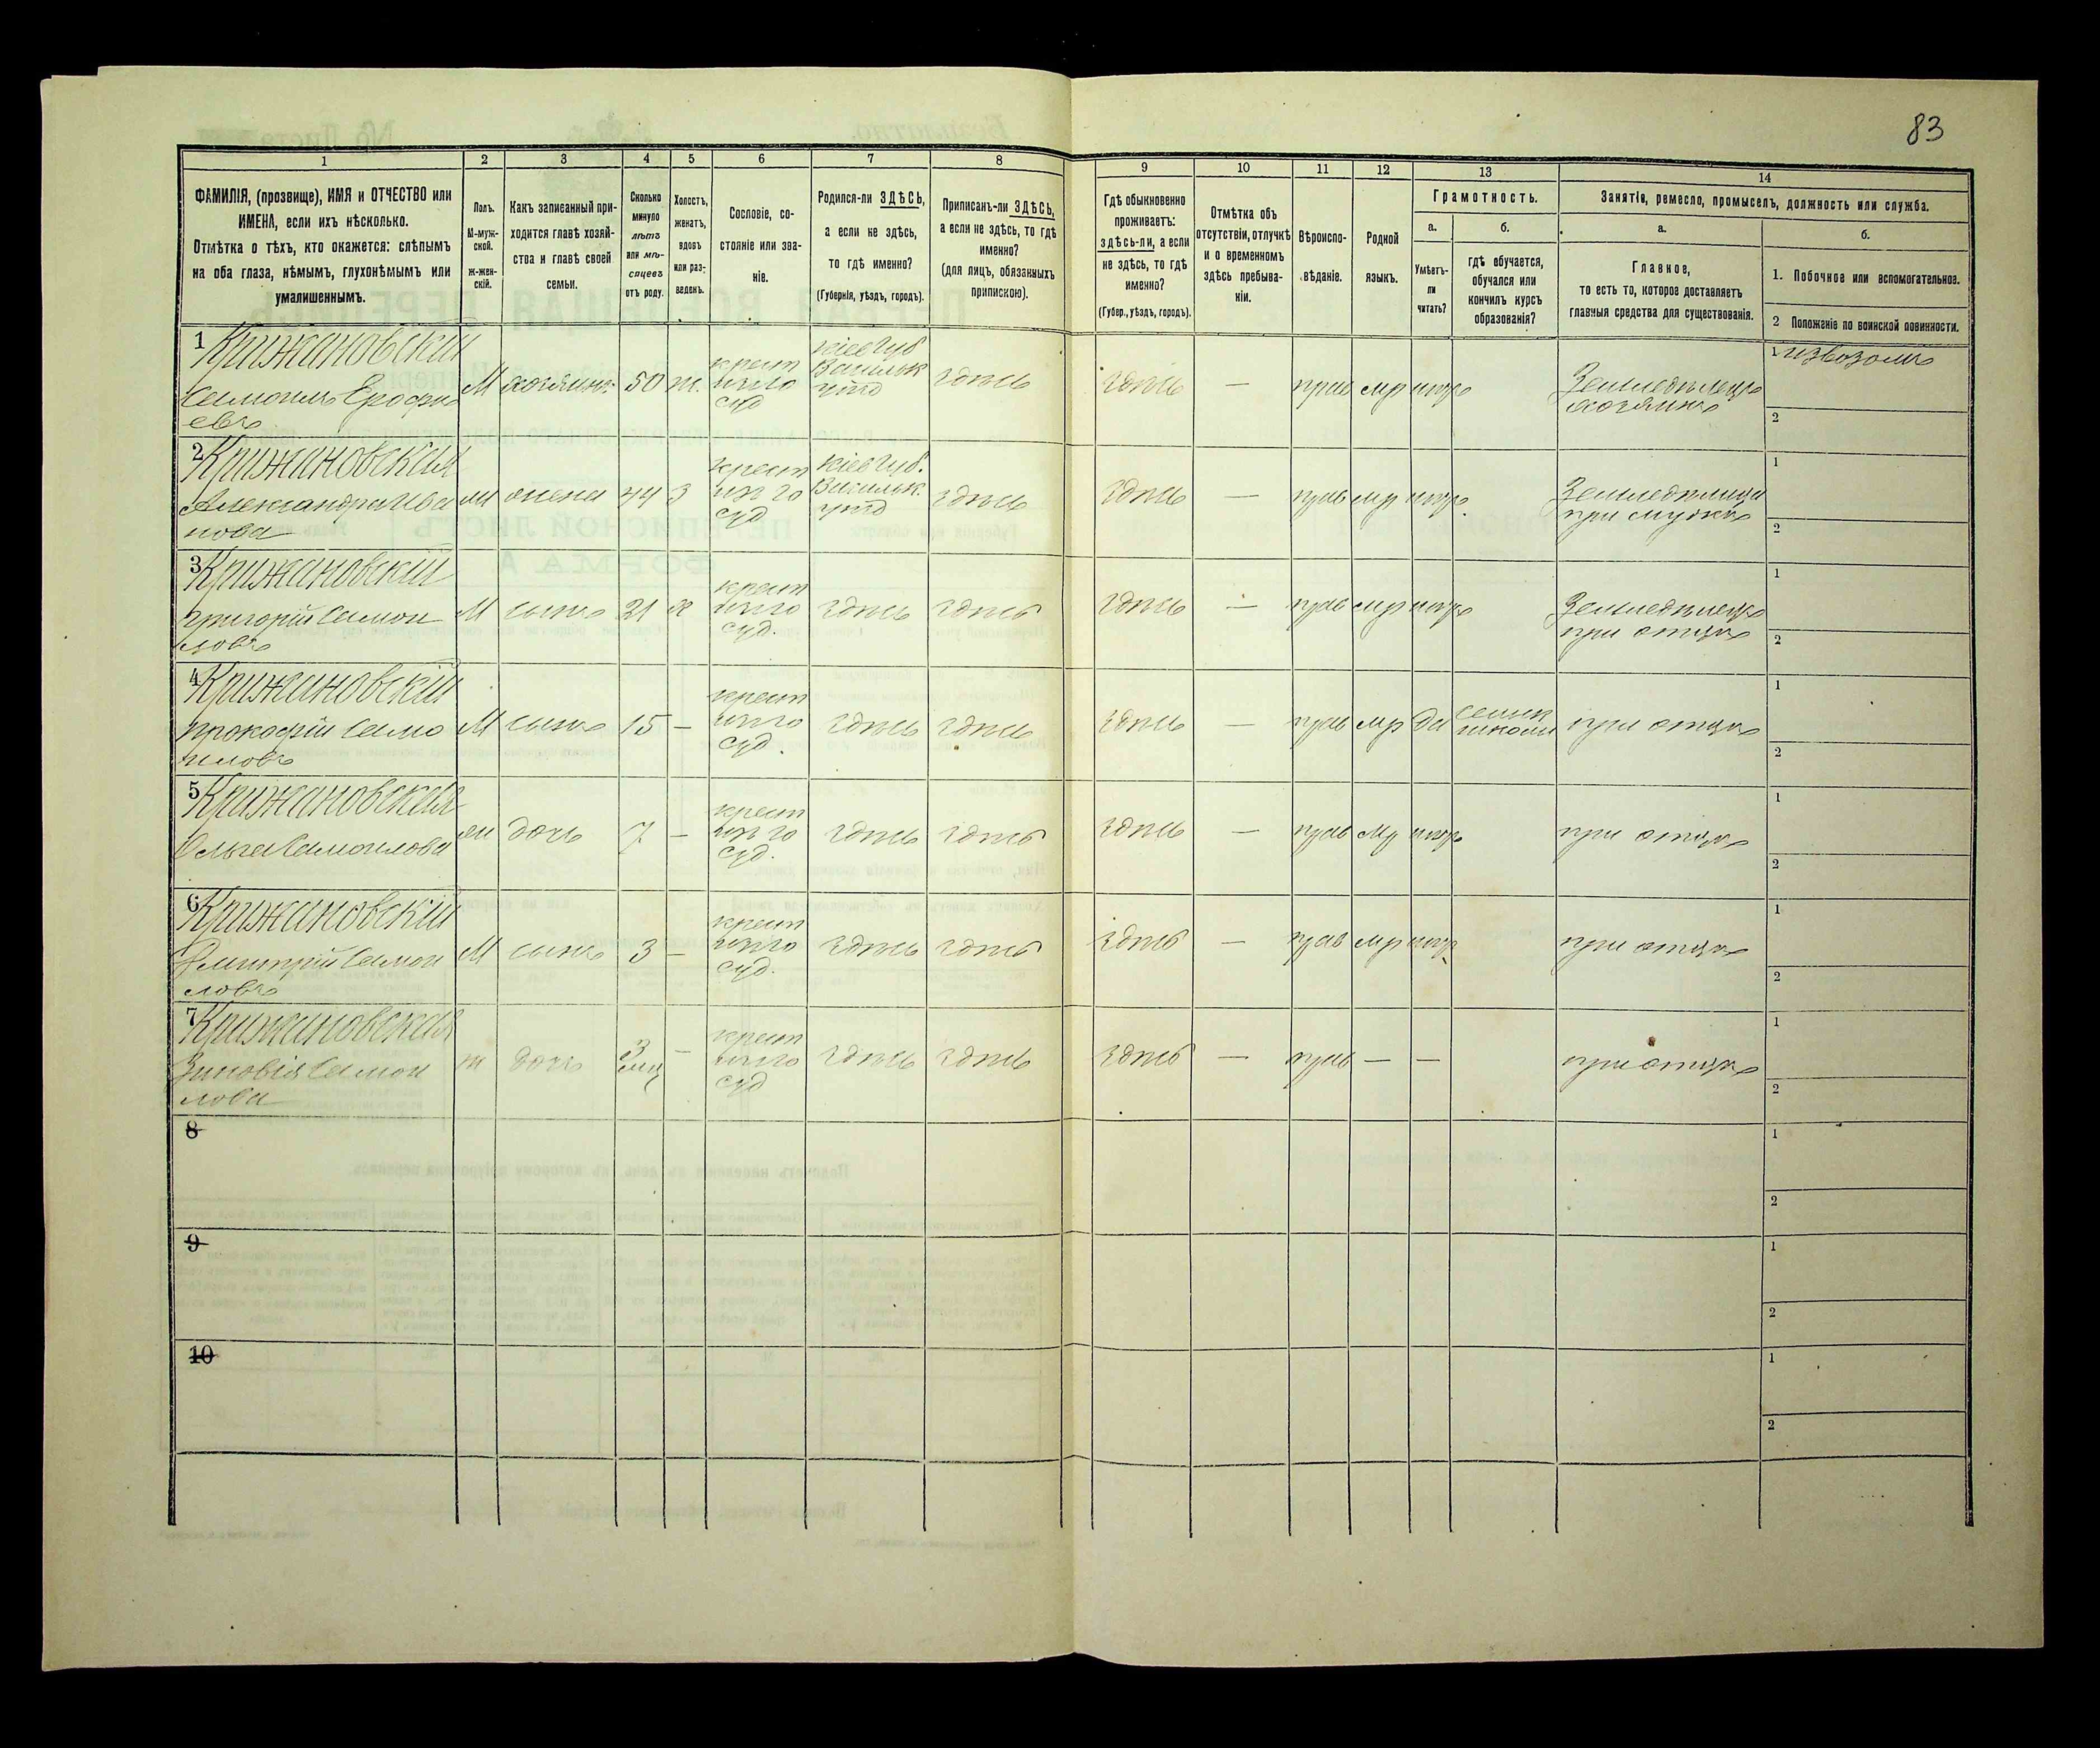 83
1 2 3 4 5 6 7 8 9 10 11 12 13 14
ФАМИЛІЯ, (прозвище), ИМЯ и ОТЧЕСТВО или
ИМЕНА, если ихъ нѣсколько.
Отмѣтка о тѣхъ, кто окажется: слѣпымъ
на оба глаза, нѣмымъ, глухонѣмымъ или
умалишеннымъ.
Полъ.
М-муж-
ской.
ж-жен-
скій.
Какъ записанный при-
ходится главѣ хозяй-
ства и главѣ своей
семьи.
Сколько
минуло
лѣтъ
или мѣ-
сяцевъ
отъ роду.
Холостъ,
женатъ,
вдовъ
или раз-
веденъ.
Сословіе, со-
стояніе или зва-
ніе.
Родился-ли ЗДѢСЬ,
а если не здѣсь,
то гдѣ именно?
(Губернія, уѣздъ, городъ).
Приписанъ-ли ЗДѢСЬ,
а если не здѣсь, то гдѣ
именно?
(для лицъ, обязанныхъ
припискою).
Гдѣ обыкновенно
проживаетъ:
здѣсь-ли, а если
не здѣсь, то гдѣ
именно?
(Губер., уѣздъ, городъ).
Отмѣтка объ
отсутствіи, отлучкѣ
и о временномъ
здѣсь пребыва-
ніи.
Вѣроиспо-
вѣданіе.
Родной
языкъ.
Грамотность.
а.
Умѣетъ-
ли
читать?
б.
гдѣ обучается,
обучался или
кончилъ курсъ
образованія?
Занятіе, ремесло, промыселъ, должность или служба.
а.
Главное,
то есть то, которое доставляетъ
главныя средства для существованія.
б.
1. Побочное или вспомогательное.
2 Положеніе по воинской повинности.
1 Крижановскій
Самоилъ Ерофѣ
евъ
М хозяинъ 50 ж.
крест
изъ го
суд
Кіев Губ
Васильк
уѣзд
здѣсь
здѣсь — прав мр негр
Земледѣлецъ
хозяинъ
1 извозомъ
2
2 Крижановская
Александра Ива
нова
ж жена 44 з
крест
изъ го
суд
Кіев Губ.
Васильк.
уѣзд
здѣсь
здѣсь — прав мр негр.
Земледѣлица
при мужѣ
1
2
3 Крижановскій
Григорій Самои
ловъ
М сынъ 21 х
крест
изъ го
суд.
здѣсь здѣсь
здѣсь — прав мр негр
Земледѣлецъ
при отцѣ
1
2
4 Крижановскій
Прокофій Само
иловъ
М сынъ 15 —
крест
изъ го
суд.
здѣсь здѣсь
здѣсь — прав мр да
сельск
школи
при отцѣ
1
2
5 Крижановская
Ольга Самоилова
ж дочь 7 —
крест
изъ го
суд.
здѣсь здѣсь
здѣсь — прав мр негр
при отцѣ
1
2
6 Крижановскій
Дмитрій Самои
ловъ
М сынъ 3 —
крест
изъ го
суд.
здѣсь здѣсь
здѣсь — прав мр негр
при отцѣ
1
2
7 Крижановская
Зиновія Самои
лова
ж дочь
3
мц
—
крест
изъ го
суд
здѣсь здѣсь
здѣсь — прав — —
при отцѣ
1
2
8
1
2
9
1
2
10
1
2